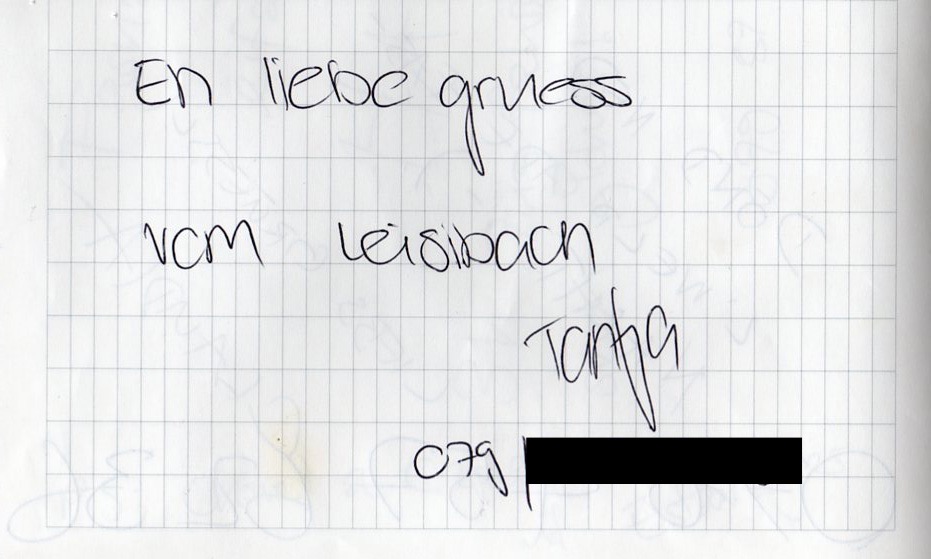 En liebe gruess
vom Leisibach
Tanja
079